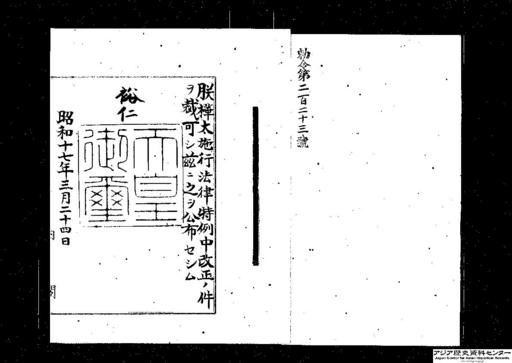 勅令第二百二十三號
朕樺太施行法律特例中改正ノ件
ヲ裁可シ茲ニ之ヲ公布セシム
裕仁
天皇
御璽
昭和十七年三月二十四日
内
閣
アジア歴史資料センター
Japan Center for Asian Historical Records